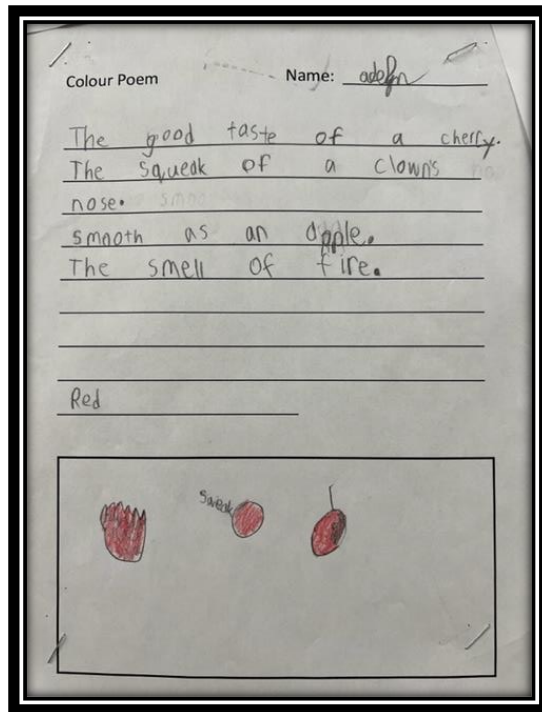 Colour Poem
Name:
The good taste of a cherry.
The squeak of a clown's
nose.
smooth as an apple.
The smell of fire.
Red
Squeak